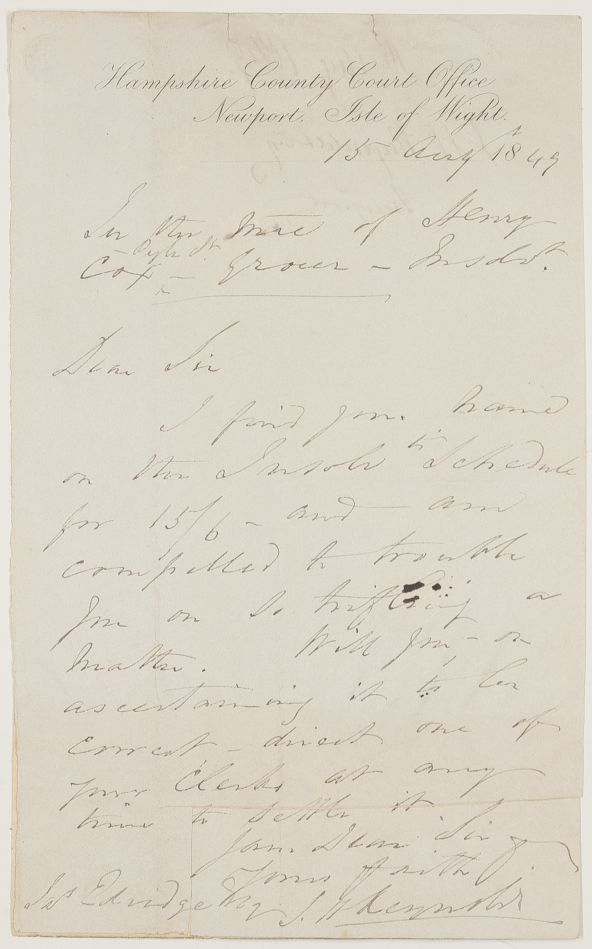 Hampshire County Court Office
Newport. Isle of Wight.
15 Augt 1849
In the Mre of Henry
Pyle St.
Cox - Grocer - Insolvt.
Dear Sir
I find your name
on the Insolvts Schedule
for 15/6 - and am
compelled to trouble
you on so trifling a
matter. Will you - on
ascertaining it to be
correct - direct one of
your Clerks at any
time to settle it
I am Dear Sir
Yours faith
Jas Eldridge Esq J. H Reynolds